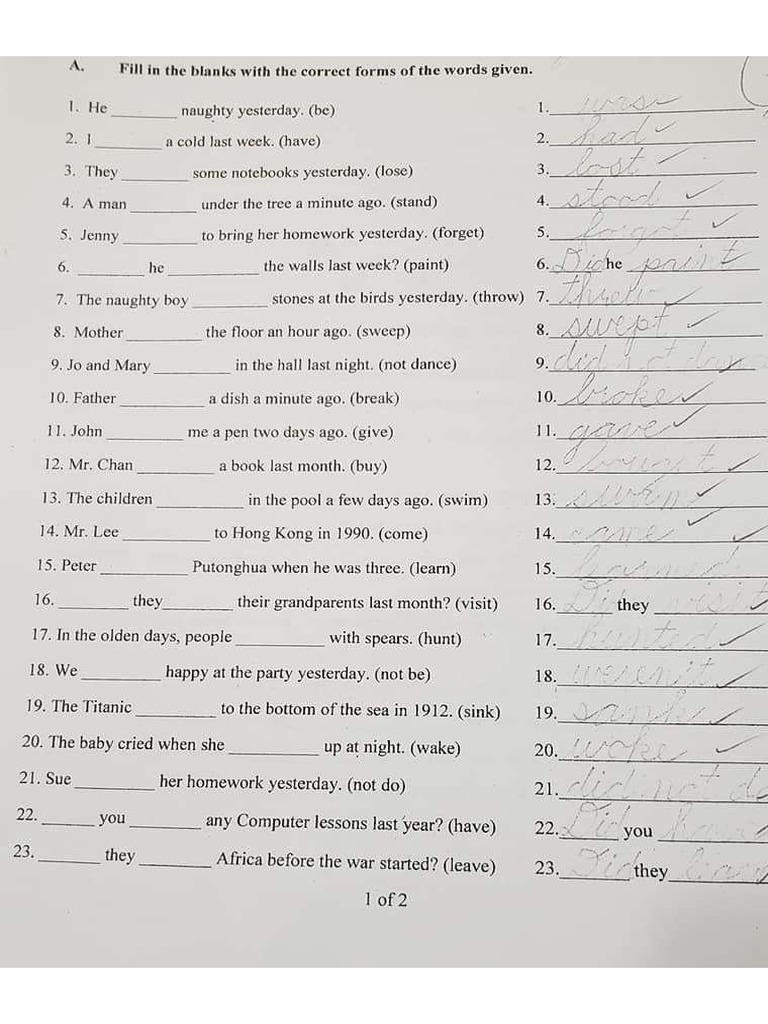 A. Fill in the blanks with the correct forms of the words given.
1. He ________ naughty yesterday. (be) 1. was
2. I ________ a cold last week. (have) 2. had
3. They ________ some notebooks yesterday. (lose) 3. lost
4. A man ________ under the tree a minute ago. (stand) 4. stood
5. Jenny ________ to bring her homework yesterday. (forget) 5. forgot
6. ________ he ________ the walls last week? (paint) 6. Did he paint
7. The naughty boy ________ stones at the birds yesterday. (throw) 7.
8. Mother ________ the floor an hour ago. (sweep) 8. swept
9. Jo and Mary ________ in the hall last night. (not dance) 9. did not
10. Father ________ a dish a minute ago. (break) 10. broke
11. John ________ me a pen two days ago. (give) 11. gave
12. Mr. Chan ________ a book last month. (buy) 12. bought
13. The children ________ in the pool a few days ago. (swim) 13.
14. Mr. Lee ________ to Hong Kong in 1990. (come) 14. came
15. Peter ________ Putonghua when he was three. (learn) 15. learned
16. ________ they ________ their grandparents last month? (visit) 16. Did they visit
17. In the olden days, people ________ with spears. (hunt) 17. hunted
18. We ________ happy at the party yesterday. (not be) 18. weren't
19. The Titanic ________ to the bottom of the sea in 1912. (sink) 19. sank
20. The baby cried when she ________ up at night. (wake) 20. woke
21. Sue ________ her homework yesterday. (not do) 21. did not do
22. ________ you ________ any Computer lessons last year? (have) 22. Did you have
23. ________ they ________ Africa before the war started? (leave) 23. Did they leave
1 of 2